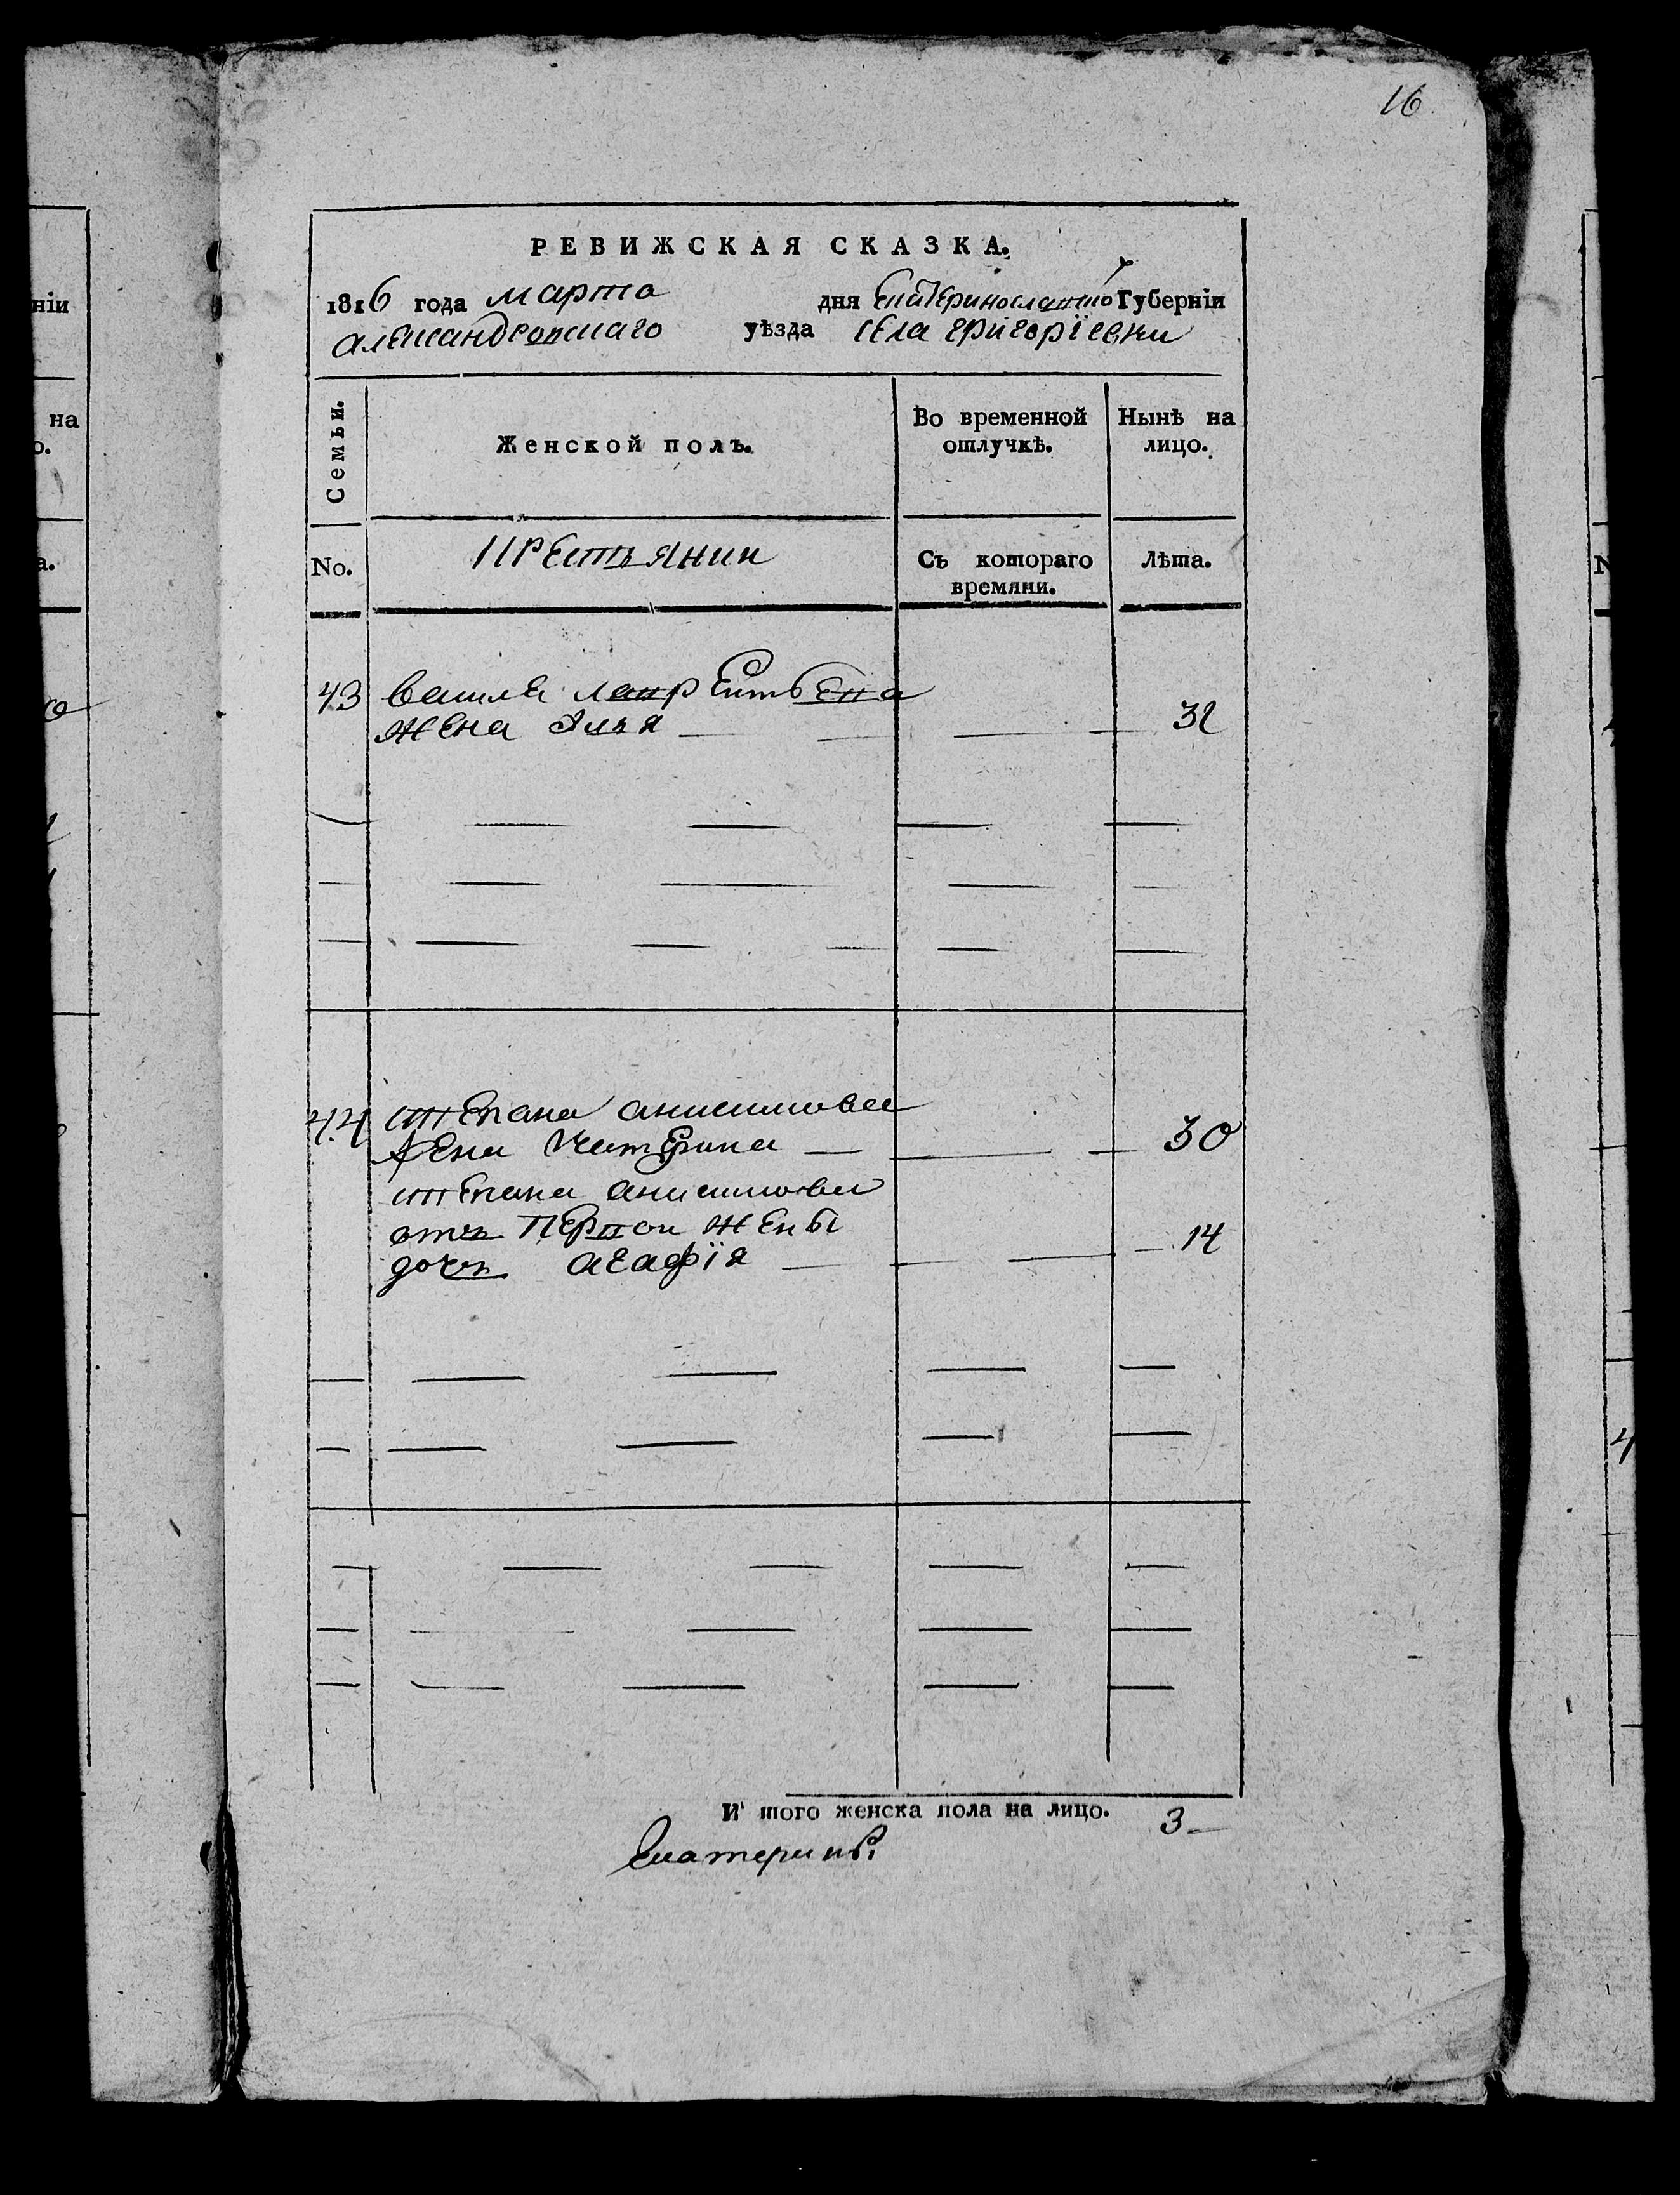 16
РЕВИЖСКАЯ СКАЗКА.
1816 года марта дня Екатеринославской Губерніи
александровскаго уѣзда села григоріевки
Семьи. Женской полъ. Во временной отлучкѣ. Нынѣ на лицо.
No. крестьянки Съ котораго времяни. Лѣта.
43 василя лаврентьева
жена Юлія 32
44 степана анисимова
жена Катерина 30
степана анисимова
отъ первои жены
дочь агафія 14
И того женска пола на лицо. 3
Екатерины
ніи
на
о.
а.
N
4